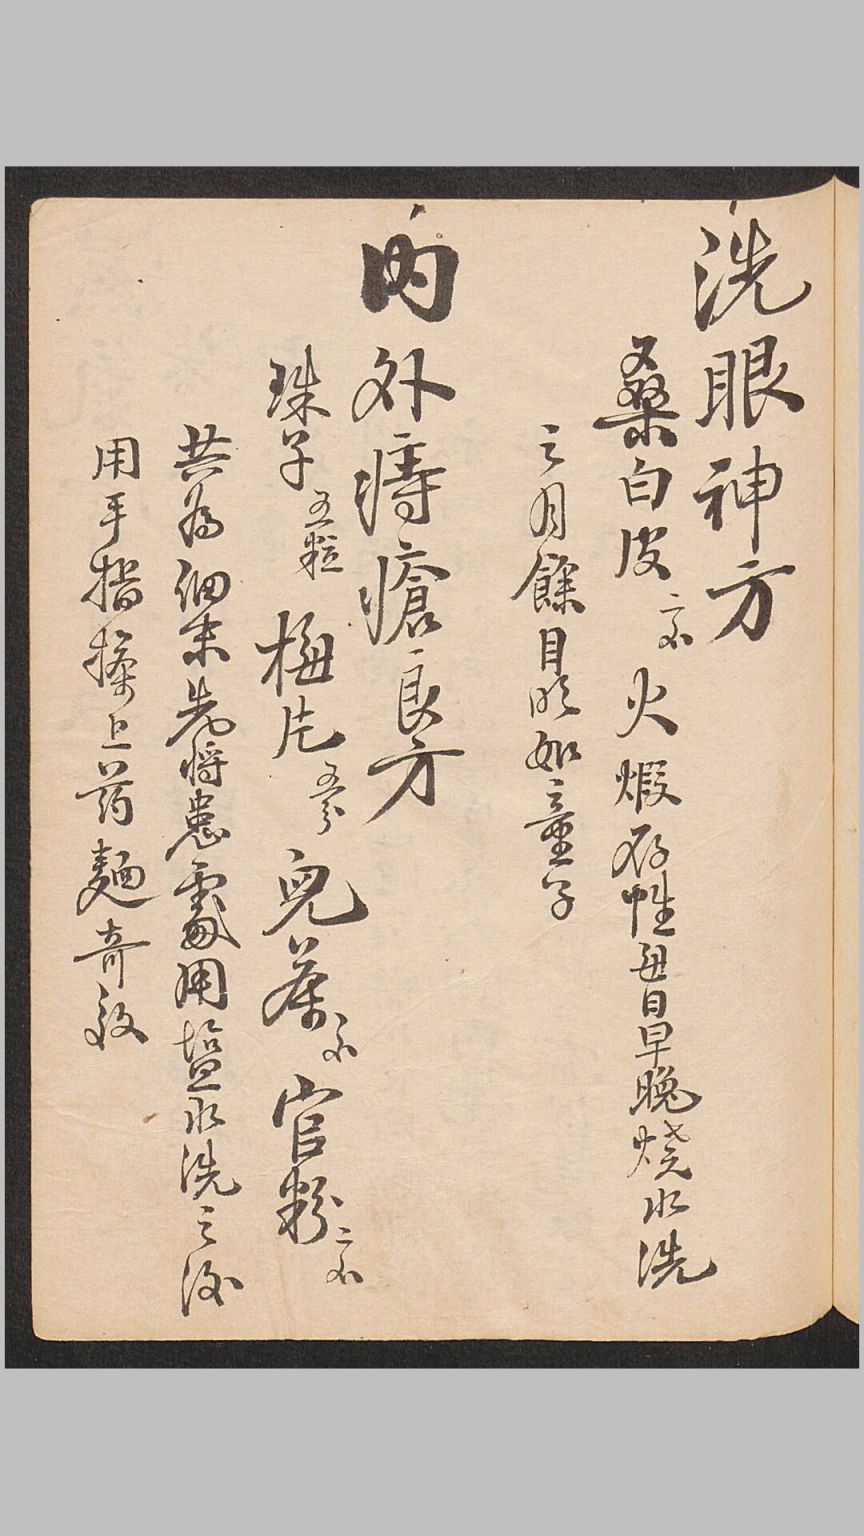 洗眼神方
桑白皮 火煅存性每日早晚烧水洗
之月餘目明如童子
內外痔瘡良方
珠子五粒 梅片五分 兒茶 官粉
共為細末先將患處用塩水洗之後
用手指擦上药麵奇效